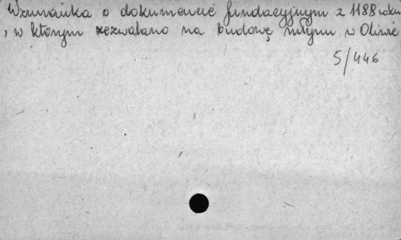 Wzmianka o dokumencie fundacyjnym z 1188 roku
, w którym zezwalano na budowę młynu w Oliwie
5/446